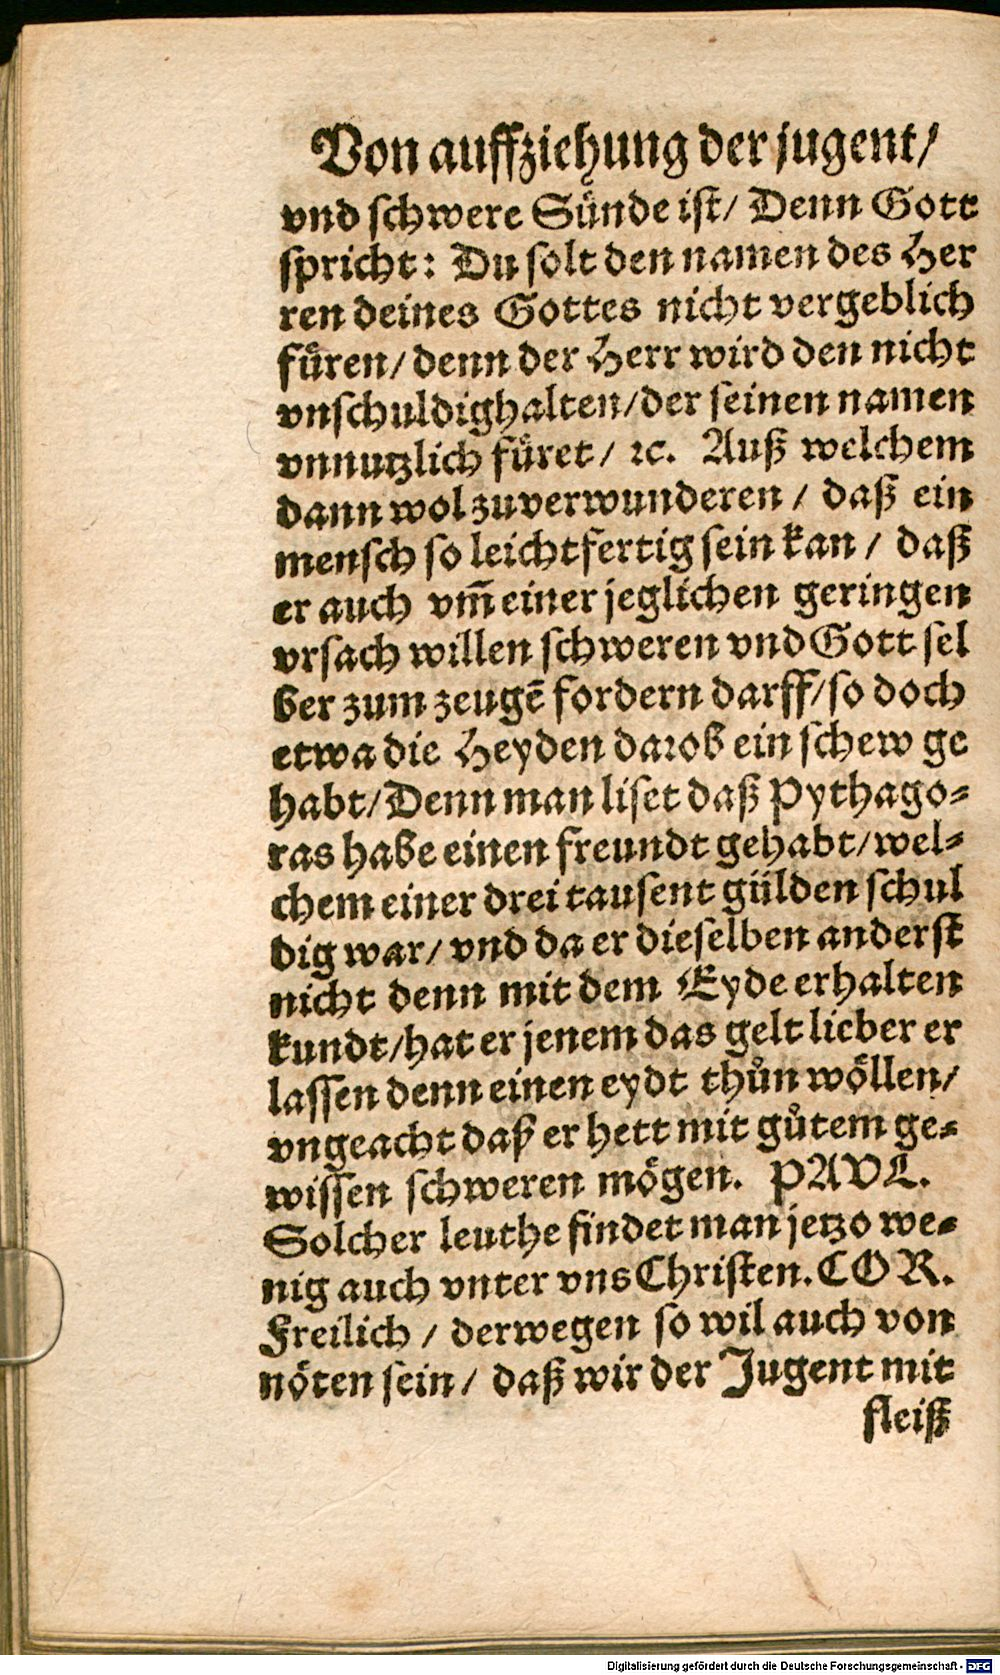 Von auffziehung der jugent/
vnd schwere Sünde ist/ Denn Gott
spricht: Du solt den namen des Her
ren deines Gottes nicht vergeblich
füren/ denn der Herr wird den nicht
vnschuldighalten/der seinen namen
vnnutzlich füret/ ꝛc. Auß welchem
dann wol zuverwunderen / daß ein
mensch so leichtfertig sein kan / daß
er auch vm̃ einer jeglichen geringen
vrsach willen schweren vnd Gott sel
ber zum zeugẽ fordern darff/so doch
etwa die Heyden darob ein schew ge
habt/Denn man liset daß Pythago-
ras habe einen freundt gehabt/wel-
chem einer drei tausent gülden schul
dig war/ vnd da er dieselben anderst
nicht denn mit dem Eyde erhalten
kundt/hat er jenem das gelt lieber er
lassen denn einen eydt thůn wöllen/
vngeacht daß er hett mit gůtem ge-
wissen schweren mögen. PAVL.
Solcher leuthe findet man jetzo we-
nig auch vnter vns Christen. COR.
Freilich / derwegen so wil auch von
nöten sein/ daß wir der Jugent mit
fleiß
Digitalisierung gefördert durch die Deutsche Forschungsgemeinschaft - DFG